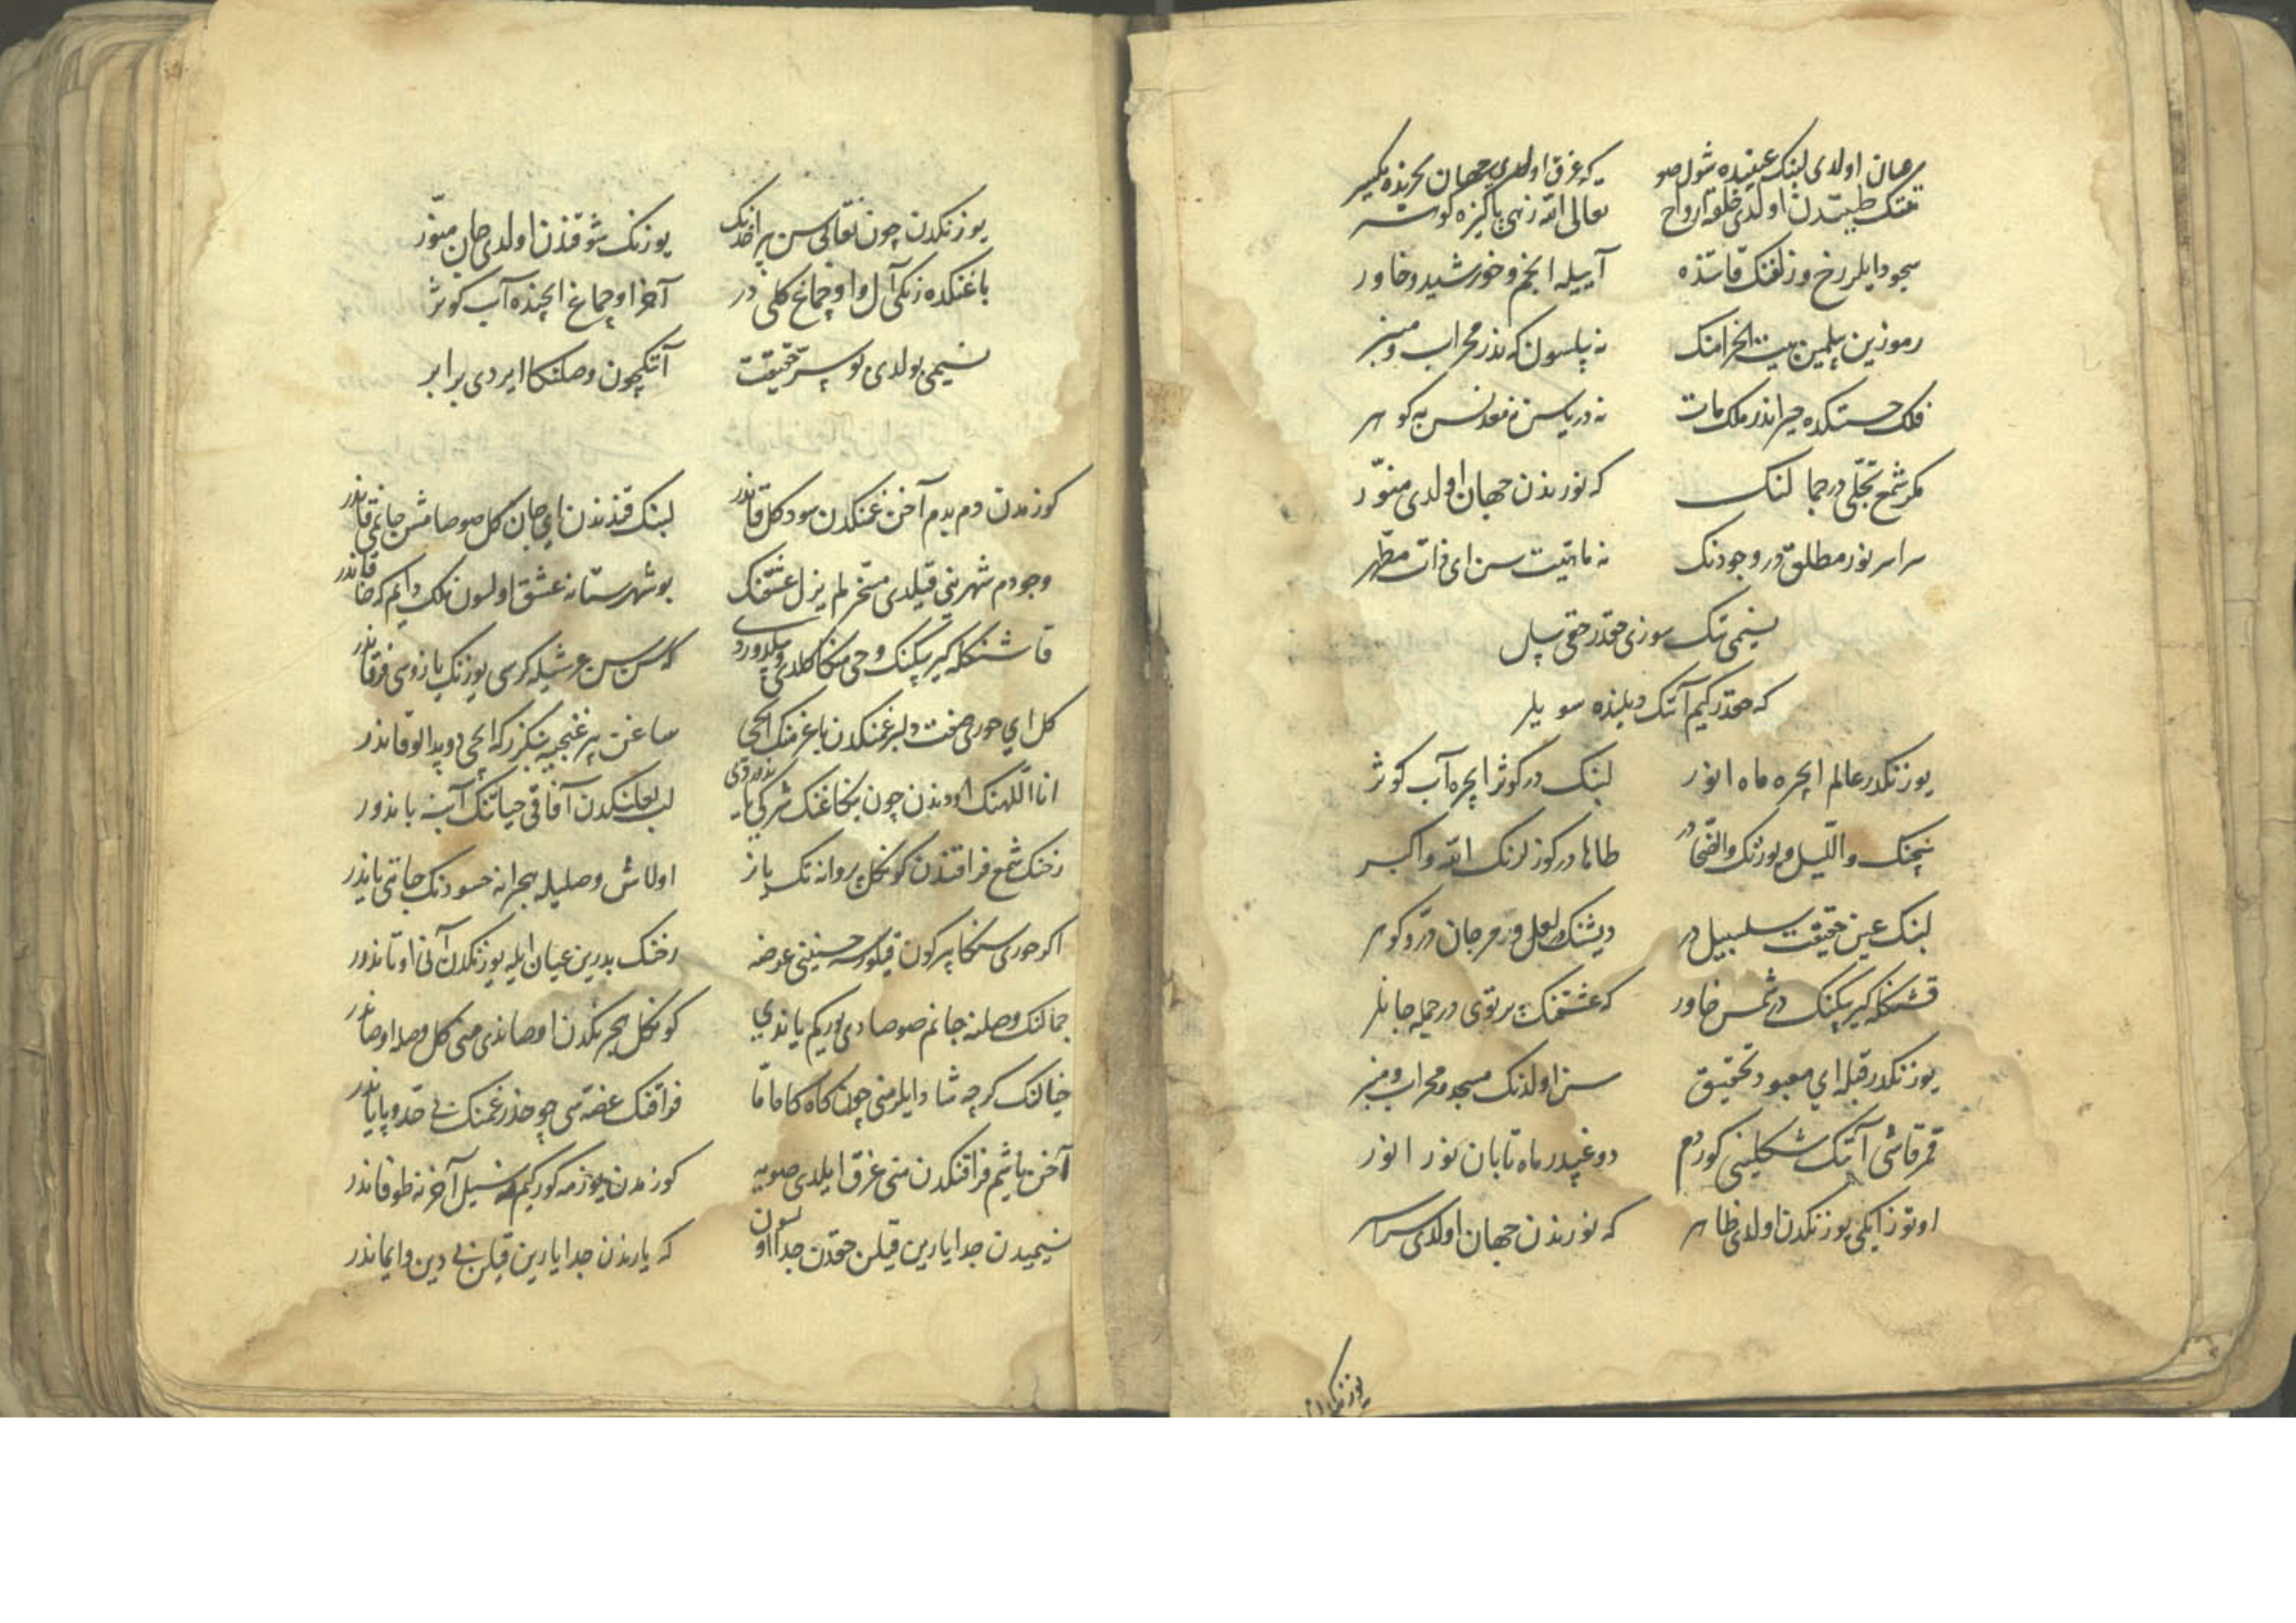 عیان اولدی لبنک عینیده شول صو که غرق اولدی جهان بحرنده یکسر
تنتک طیبتدن اولدی خلقه ارواح تعالی الله زهی پاکیزه کوهر
سجود ایلر رخ و زلفنک قاتنده آییله انجم و خورشید و خاور
رموزین بیلمین بیت الحرامنک نه بیلسون که نذر محراب و منبر
فلک حسنکده حیراندر ملک مات نه دریاسن نه معدنسن نه کوهر
مکر شمع تجلی در جمالنک که نورندن جهان اولدی منور
سراسر نور مطلق در وجودنک نه ماهیت سن ای ذات مطهر
نسیمی تک سوزی حقدر حقی بیل
که حقدر کیم آنک دیلنده سویلر
یوزنکدر عالم ایچره ماه انور لبنک در کوثر ایچره آب کوثر
ساچنک واللیل و یوزنک والضحا در طاها در کوزلرنک الله و اکبر
لبنک عین حقیقت سلسبیل در دیشنک لعل و مرجان در و کوهر
قشنکله کیرپکنک در شمس خاور که عشقنک پرتوی در جمله جانلر
یوزنکدر قبله ای معبود تحقیق سن اولدنک مسجد و محراب و منبر
قمر قاشی آنک شکلینی کوردم دوغپدر ماه تابان نور انور
اوتوز ایکی یوزنکدن اولدی ظاهر که نورندن جهان اولدی سراسر
یوزنکدن
یوزنکدن چون نقابی سن بر اخدنک یوزنک شوقندن اولدی جان منور
باغنکده زنکی آل و اوچماغ کلی در آخر اوچماغ ایچنده آب کوثر
نسیمی بولدی بو سر حقیقت آنکچون وصلنکا ایردی برابر
کوزمدن دم بدم آخن غمنکدن سود کل قاندر لبنک قندندن ای جان کل صوصامش جانمی قاندر
وجودم شهرنی قیلدی مسخر لم یزل عشقنک بو شهرستانه عشق اولسون ملک دایم که خاقاندر
قاشنکله کیرپکنک وحی منکا کلدی سن سن عرشیله کرسی یوزنک یازوسی فرقاندر
کل ای حوری صفت دلبر غمنکدن باغرمنک ایچی ساغن بر غنجیه بنکزر که ایچی دوپدالو قاندر
انا اللهنک اودندن چون لب لعلنکدن آفاقی حیاتنک آبنه باندور
رخنک شمع فراقندن کونکل پروانه تک یانر اولاش وصلیله هجرانه حسودنک جانی یاندر
اکر حوری سنکا بر کون قیلورسه حسنینی عرضه رخنک بدرین عیان ایله یوزنکدن آنی اوتاندور
جمالنک وصلنه جانم صوصادی یورکم یاندی کونکل هجرنکدن اوصاندی منی کل وصله اوصاندر
خیالنک کرچه شاد ایلر منی چون کاه کاه اما فراقنک غصه سی چوخدر غمنک بی حد و پایاندر
آخن یاشیم فراقنکدن منی غرق ایلدی صویه کوزمدن یوزمه کور کیم نه سیل آخر نه طوفاندر
نسیمیدن جدا یارین قیلن حقدن جدا اولسون که یارندن جدا یارین قیلن بی دین و ایماندر